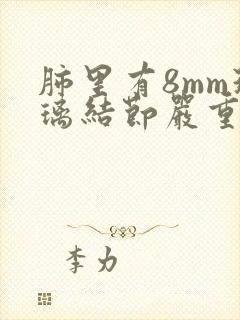 肺里有8mm
璃結節嚴重
李力